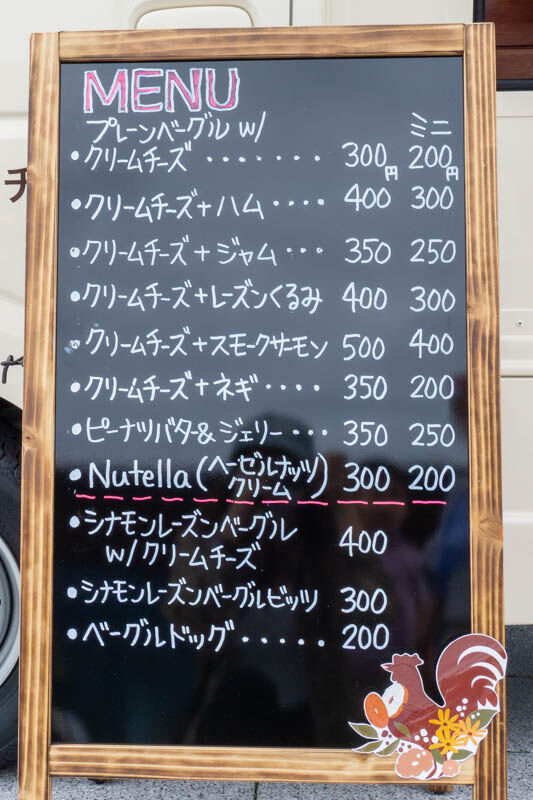 MENU
プレーンベーグル w/ ミニ
・クリームチーズ ・・・・・・・ 300円 200円
・クリームチーズ+ハム・・・・ 400 300
・クリームチーズ+ジャム・・・ 350 250
・クリームチーズ+レーズンくるみ 400 300
・クリームチーズ+スモークサーモン 500 400
・クリームチーズ+ネギ・・・・ 350 200
・ピーナツバター&ジェリー・・・ 350 250
・Nutella(ヘーゼルナッツ
クリーム) 300 200
・シナモンレーズンベーグル
w/クリームチーズ 400
・シナモンレーズンベーグルビッツ 300
・ベーグルドッグ・・・・・ 200
チ